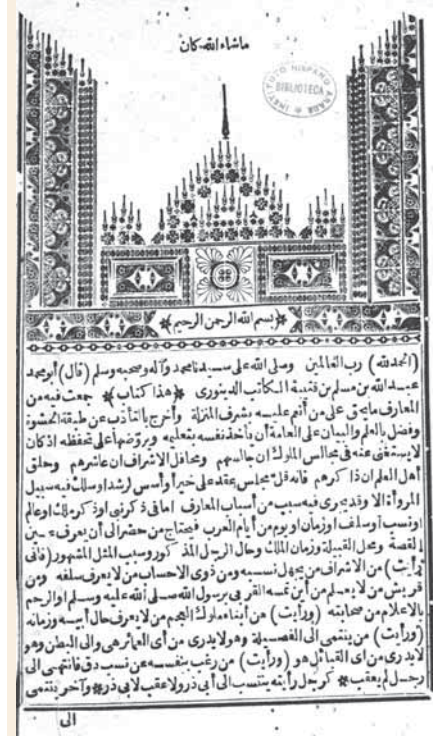 ماشاء الله كان
INSTITUTO HISPANO ARABE
BIBLIOTECA
﴿بسم الله الرحمن الرحيم﴾
(الحمد لله) رب العالمين وصلى الله على سيدنا محمد وآله وصحبه وسلم (قال) أبو محمد
عبد الله بن مسلم بن قتيبة الكاتب الدينورى ﴿هذا كتاب﴾ جمعت فيه من
المعارف ما يحق على من أنعم عليه بشرف المنزلة وأخرج بالتأدب عن طبقة الحشوة
وفضل بالعلم والبيان على العامة أن يأخذ نفسه بتعلمه ويروضها على تحفظه اذ كان
لا يستغنى عنه فى مجالس الملوك ان جالسهم ومحافل الاشراف ان عاشرهم وحلق
أهل العلم ان ذاكرهم فانه قل مجلس عقد على خير أو أسس لرشد أو سلك فيه سبيل
المروأة الا وقد يجرى فيه سبب من أسباب المعارف اما فى ذكر نبى أو ذكر ملك أو عالم
أو نسب أو سلف أو زمان أو يوم من أيام العرب فيحتاج من حضر الى أن يعرف عين
القصة ومحل القبيلة وزمان الملك وحال الرجل المذكور وسبب المثل المشهور (فانى
رأيت) من الاشراف من يجهل نسبه ومن ذوى الاحساب من لا يعرف سلفه ومن
قريش من لا يعلم من أين تمسه القربى برسول الله صلى الله عليه وسلم او الرحم
بالاعلام من صحابته (ورأيت) من أبناء ملوك العجم من لا يعرف حال أبيه وزمانه
(ورأيت) من ينتمى الى الفصيلة وهو لا يدرى من أى العمائر هى والى البطن وهو
لا يدرى من أى القبائل هو (ورأيت) من رغب بنفسه عن نسب دق فانتهى الى
رجل لم يعقب * كرجل رأيته ينتسب الى أبى ذر ولا عقب لابى ذر * وآخر ينتمى
الى